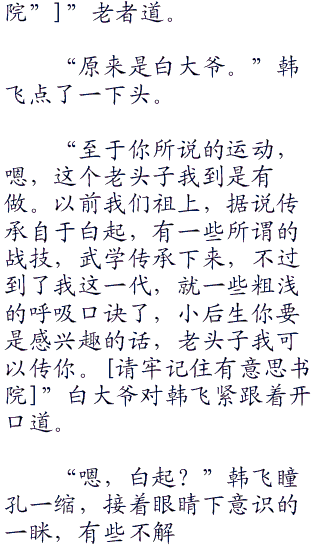 院”]”老者道。
“原来是白大爷。”韩
飞点了一下头。
“至于你所说的运动，
嗯，这个老头子我到是有
做。以前我们祖上，据说传
承自于白起，有一些所谓的
战技，武学传承下来，不过
到了我这一代，就一些粗浅
的呼吸口诀了，小后生你要
是感兴趣的话，老头子我可
以传你。[请牢记住有意思书
院]”白大爷对韩飞紧跟着开
口道。
“嗯，白起？”韩飞瞳
孔一缩，接着眼睛下意识的
一眯，有些不解